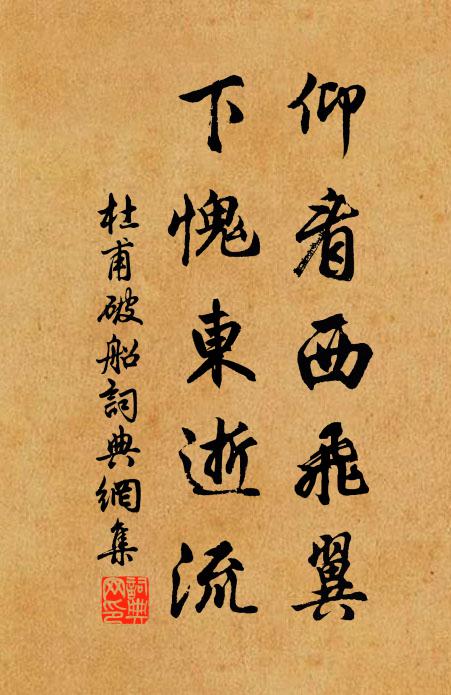 仰看西飛翼
下愧東逝流
杜甫破船詞典網集
詞典網印